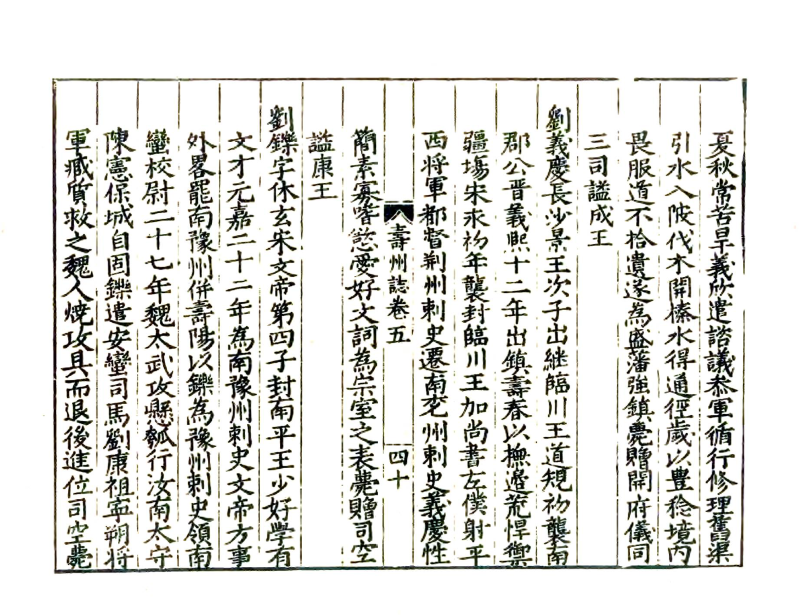 夏秋常苦旱義欣遣諮議叅軍循行修理舊渠
引水入陂伐木開榛水得通徑歲以豊稔境内
畏服道不拾遺遂為盛藩強鎮薨贈開府儀同
三司謚成王
劉義慶長沙景王次子出継臨川王道規初襲南
郡公晋義熙十二年出鎮壽春以撫邉荒悍禦
疆場宋永初年襲封臨川王加尚書左僕射平
西将軍都督荆州刺史遷南兖州刺史義慶性
壽州誌卷五
四十
簡素寡嗜慾愛好文詞為宗室之表薨贈司空
謚康王
劉鑠字休玄宋文帝第四子封南平王少好學有
文才元嘉二十二年為南豫州刺史文帝方事
外畧罷南豫州併壽陽以鑠為豫州刺史領南
蠻校尉二十七年魏太武攻懸瓠行汝南太守
陳憲保城自固鑠遣安蠻司馬劉康祖寧朔将
軍臧質救之魏人焼攻具而退後進位司空薨